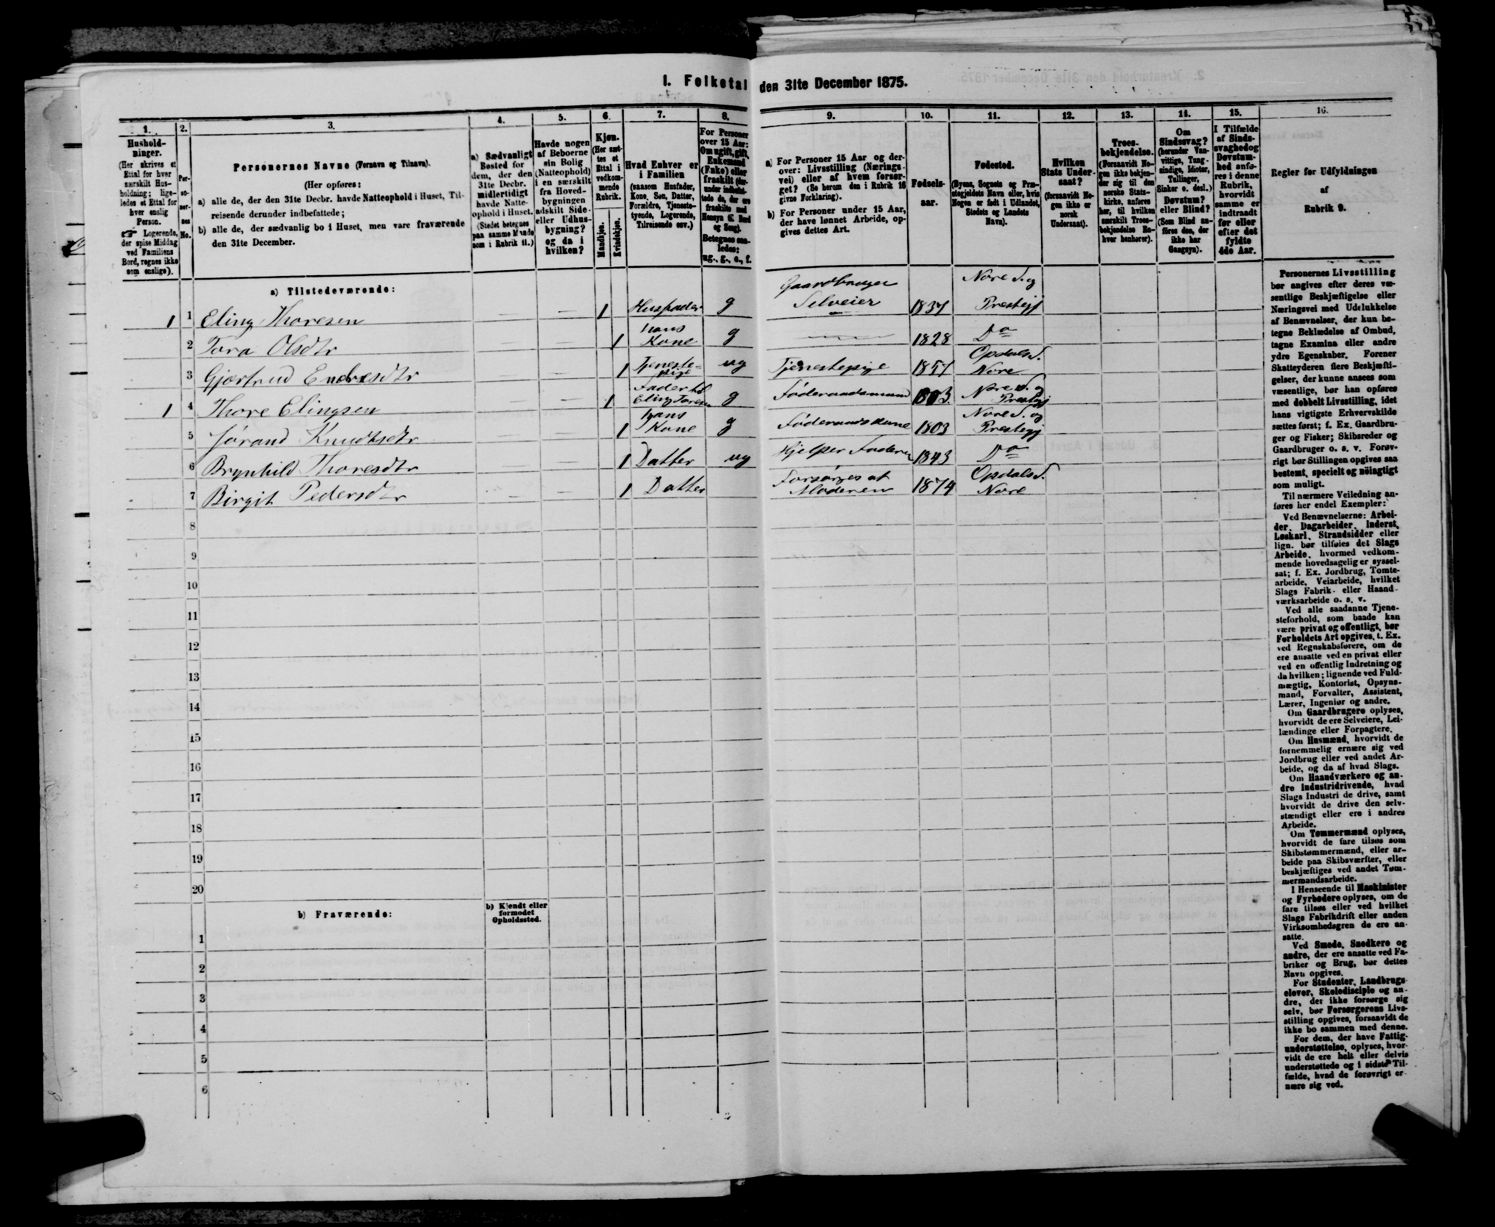 1. Folketal den 31te December 1875.
1.
Hushold-
ninger.
(Her skrives et
Ettal for hver
særskilt Hus-
holdning; lige-
ledes et Ettal for
hver enslig
Person.
☞ Logerende,
der spise Middag
ved Familiens
Bord, regnes ikke
som enslige).
2.
Per-
so-
ner-
nes
No.
3.
Personernes Navne (Fornavn og Tilnavn).
(Her opføres:
a) alle de, der den 31te Decbr. havde Natteophold i Huset, Til-
reisende derunder indbefattede;
b) alle de, der sædvanlig bo i Huset, men vare fraværende
den 31te December.
4.
a) Sædvanligt
Bosted for
dem, der den
31te Decbr.
midlertidigt
havde Natte-
ophold i Huset.
(Stedet betegnes
paa samme Maade
som i Rubrik 11.)
5.
Havde nogen
af Beboerne
sin Bolig
(Natteophold)
i en særskilt
fra Hoved-
bygningen
adskilt Side-
eller Udhus-
bygning?
og da i
hvilken?
6.
Kjøn.
(Her sæt-
tes et
Ettal i
vedkom-
mende
Rubrik.
Mandkjøn.
Kvindekjøn.
7.
Hvad Enhver er
i Familien
(saasom Husfader,
Kone, Søn, Datter,
Forældre, Tjeneste-
tyende, Logerende,
Tilreisende osv.)
8.
For Personer
over 15 Aar:
Om ugift, gift,
Enkemand
(Enke) eller
fraskilt
Betegnes saa-
ledes:
ug., g., e., f.
9.
a) For Personer 15 Aar og der-
over: Livsstilling (Nærings-
vei) eller af hvem forsør-
get? (Se herom den i Rubrik 16
givne Forklaring).
b) For Personer under 15 Aar,
der have lønnet Arbeide, op-
gives dettes Art.
10.
Fødsels-
aar.
11.
Fødested.
(Byens, Sognets og Præ-
stegjeldets Navn eller, hvis
Nogen er født i Udlandet,
Stedets og Landets
Navn).
12.
Hvilken
Stats Under-
saat?
(forsaavidt No-
gen ikke er
norsk
Undersaat).
13.
Troes-
bekjendelse.
(Forsaavidt No-
gen ikke bekjen-
der sig til den
norske Stats-
kirke, anføres
her, til hvilken
særskilt Troes-
bekjendelse En-
hver henhører).
14.
Om
Sindssvag?
(herunder Van-
vittige, Tung-
sindige, Idioter,
Tullinger,
Sinker o. desl.)
Døvstum?
eller Blind?
(Som Blind an-
føres den, der
ikke har
Gangsyn).
15.
I Tilfælde
af Sinds-
svaghed og
Døvstum-
hed anfø-
res i denne
Rubrik,
hvorvidt
samme er
indtraadt
før eller
efter det
fyldte
4de Aar.
16.
Regler før Udfyldningen
af
Rubrik 9.
a) Tilstedeværende:
1 1 Eling Thoresen 1 Husfader g Gaardbruger Selveier 1837 Nore S. og Prestegj
2 Tora Olsdtr 1 hans Kone g 1828 Do
3 Gjertrud Endresdtr 1 Tjeneste-pige ug Tjenestepige 1857 Opdals S. Nore
1 4 Thore Elingsen 1 Fader til Eling Toresen g Føderaadsmand 1803 Nore S. og Prestegj
5 Jørand Knudtsdtr 1 hans Kone g Føderaadskone 1803 Nore S. og Prestegj
6 Brynhild Thoresdtr 1 Datter ug Hjelper Faderen 1843 Do
7 Birgit Pedersdtr 1 Datter Forsørges af Moderen 1874 Opdals S. Nore
8
9
10
11
12
13
14
15
16
17
18
19
20
b) Fraværende:
b) Kjendt eller
formodet
Opholdssted.
1
2
3
4
5
6
Personernes Livsstilling
bør angives efter deres væ-
sentlige Beskjæftigelse eller
Næringsvei med Udelukkelse
af Benævnelser, der kun be-
tegne Beklædelse af Ombud,
tagne Examina eller andre
ydre Egenskaber. Forener
Skatteyderen flere Beskjæfti-
gelser, der kunne ansees som
væsentlige, bør han opføres
med dobbelt Livsstilling, idet
hans vigtigste Erhvervskilde
sættes først; f. Ex. Gaardbru-
ger og Fisker; Skibsreder og
Gaardbruger o. s. v. Forøv-
rigt bør Stillingen opgives saa
bestemt, specielt og nøiagtigt
som muligt.
Til nærmere Veiledning an-
føres her endel Exempler:
Ved Benævnelserne: Arbei-
der, Dagarbeider, Inderst,
Løskarl, Strandsidder eller
lign. bør tilføies det Slags
Arbeide, hvormed vedkom-
mende hovedsagelig er syssel-
sat; f. Ex. Jordbrug, Tomte-
arbeide, Veiarbeide, hvilket
Slags Fabrik- eller Haand-
værksarbeide o. s. v.
Ved alle saadanne Tjene-
steforhold, som baade kan
være privat og offentligt, bør
Forholdets Art opgives, t. Ex.
ved Regnskabsførere, om de
ere ansatte ved en privat eller
ved en offentlig Indretning og
da hvilken; lignende ved Fuld-
mægtig, Kontorist, Opsyns-
mand, Forvalter, Assistent,
Lærer, Ingeniør og andre.
Om Gaardbrugere oplyses,
hvorvidt de ere Selveiere, Lei-
lændinge eller Forpagtere.
Om Husmænd, hvorvidt de
fornemmelig ernære sig ved
Jordbrug eller ved andet Ar-
beide, og da af hvad Slags.
Om Haandværkere og an-
dre Industridrivende, hvad
Slags Industri de drive, samt
hvorvidt de drive den selv-
stændigt eller ere i andres
Arbeide.
Om Tømmermænd oplyses,
hvorvidt de fare tilsøs som
Skibstømmermænd, eller ar-
beide paa Skibsværfter, eller
beskjæftiges ved andet Tøm-
mermandsarbeide.
I Henseende til Maskinister
og Fyrbødere oplyses, om de
fare tilsøs eller ved hvilket
Slags Fabrikdrift eller anden
Virksomhedsgren de ere an-
satte.
Ved Smede, Snedkere og
andre, der ere ansatte ved Fa-
briker og Brug, bør dettes
Navn opgives.
For Studenter, Landbrugs-
elever, Skoledisciple og an-
dre, der ikke forsørge sig
selv, bør Forsørgerens Livs-
stilling opgives, forsaavidt de
ikke bo sammen med denne.
For dem, der have Fattig-
understøttelse, oplyses, hvor-
vidt de ere helt eller delvis
understøttede og i sidste Til-
fælde, hvad de forøvrigt er-
nære sig ved.